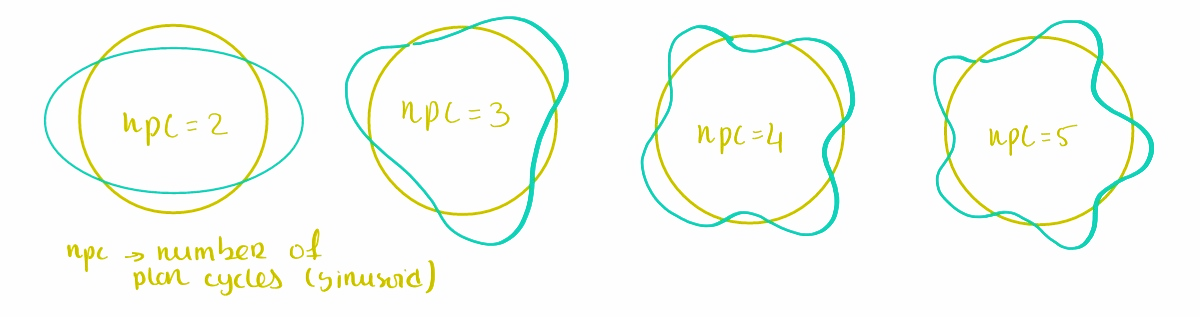 npc = 2
npc = 3
npc = 4
npc = 5
npc → number of
plan cycles (sinusoid)